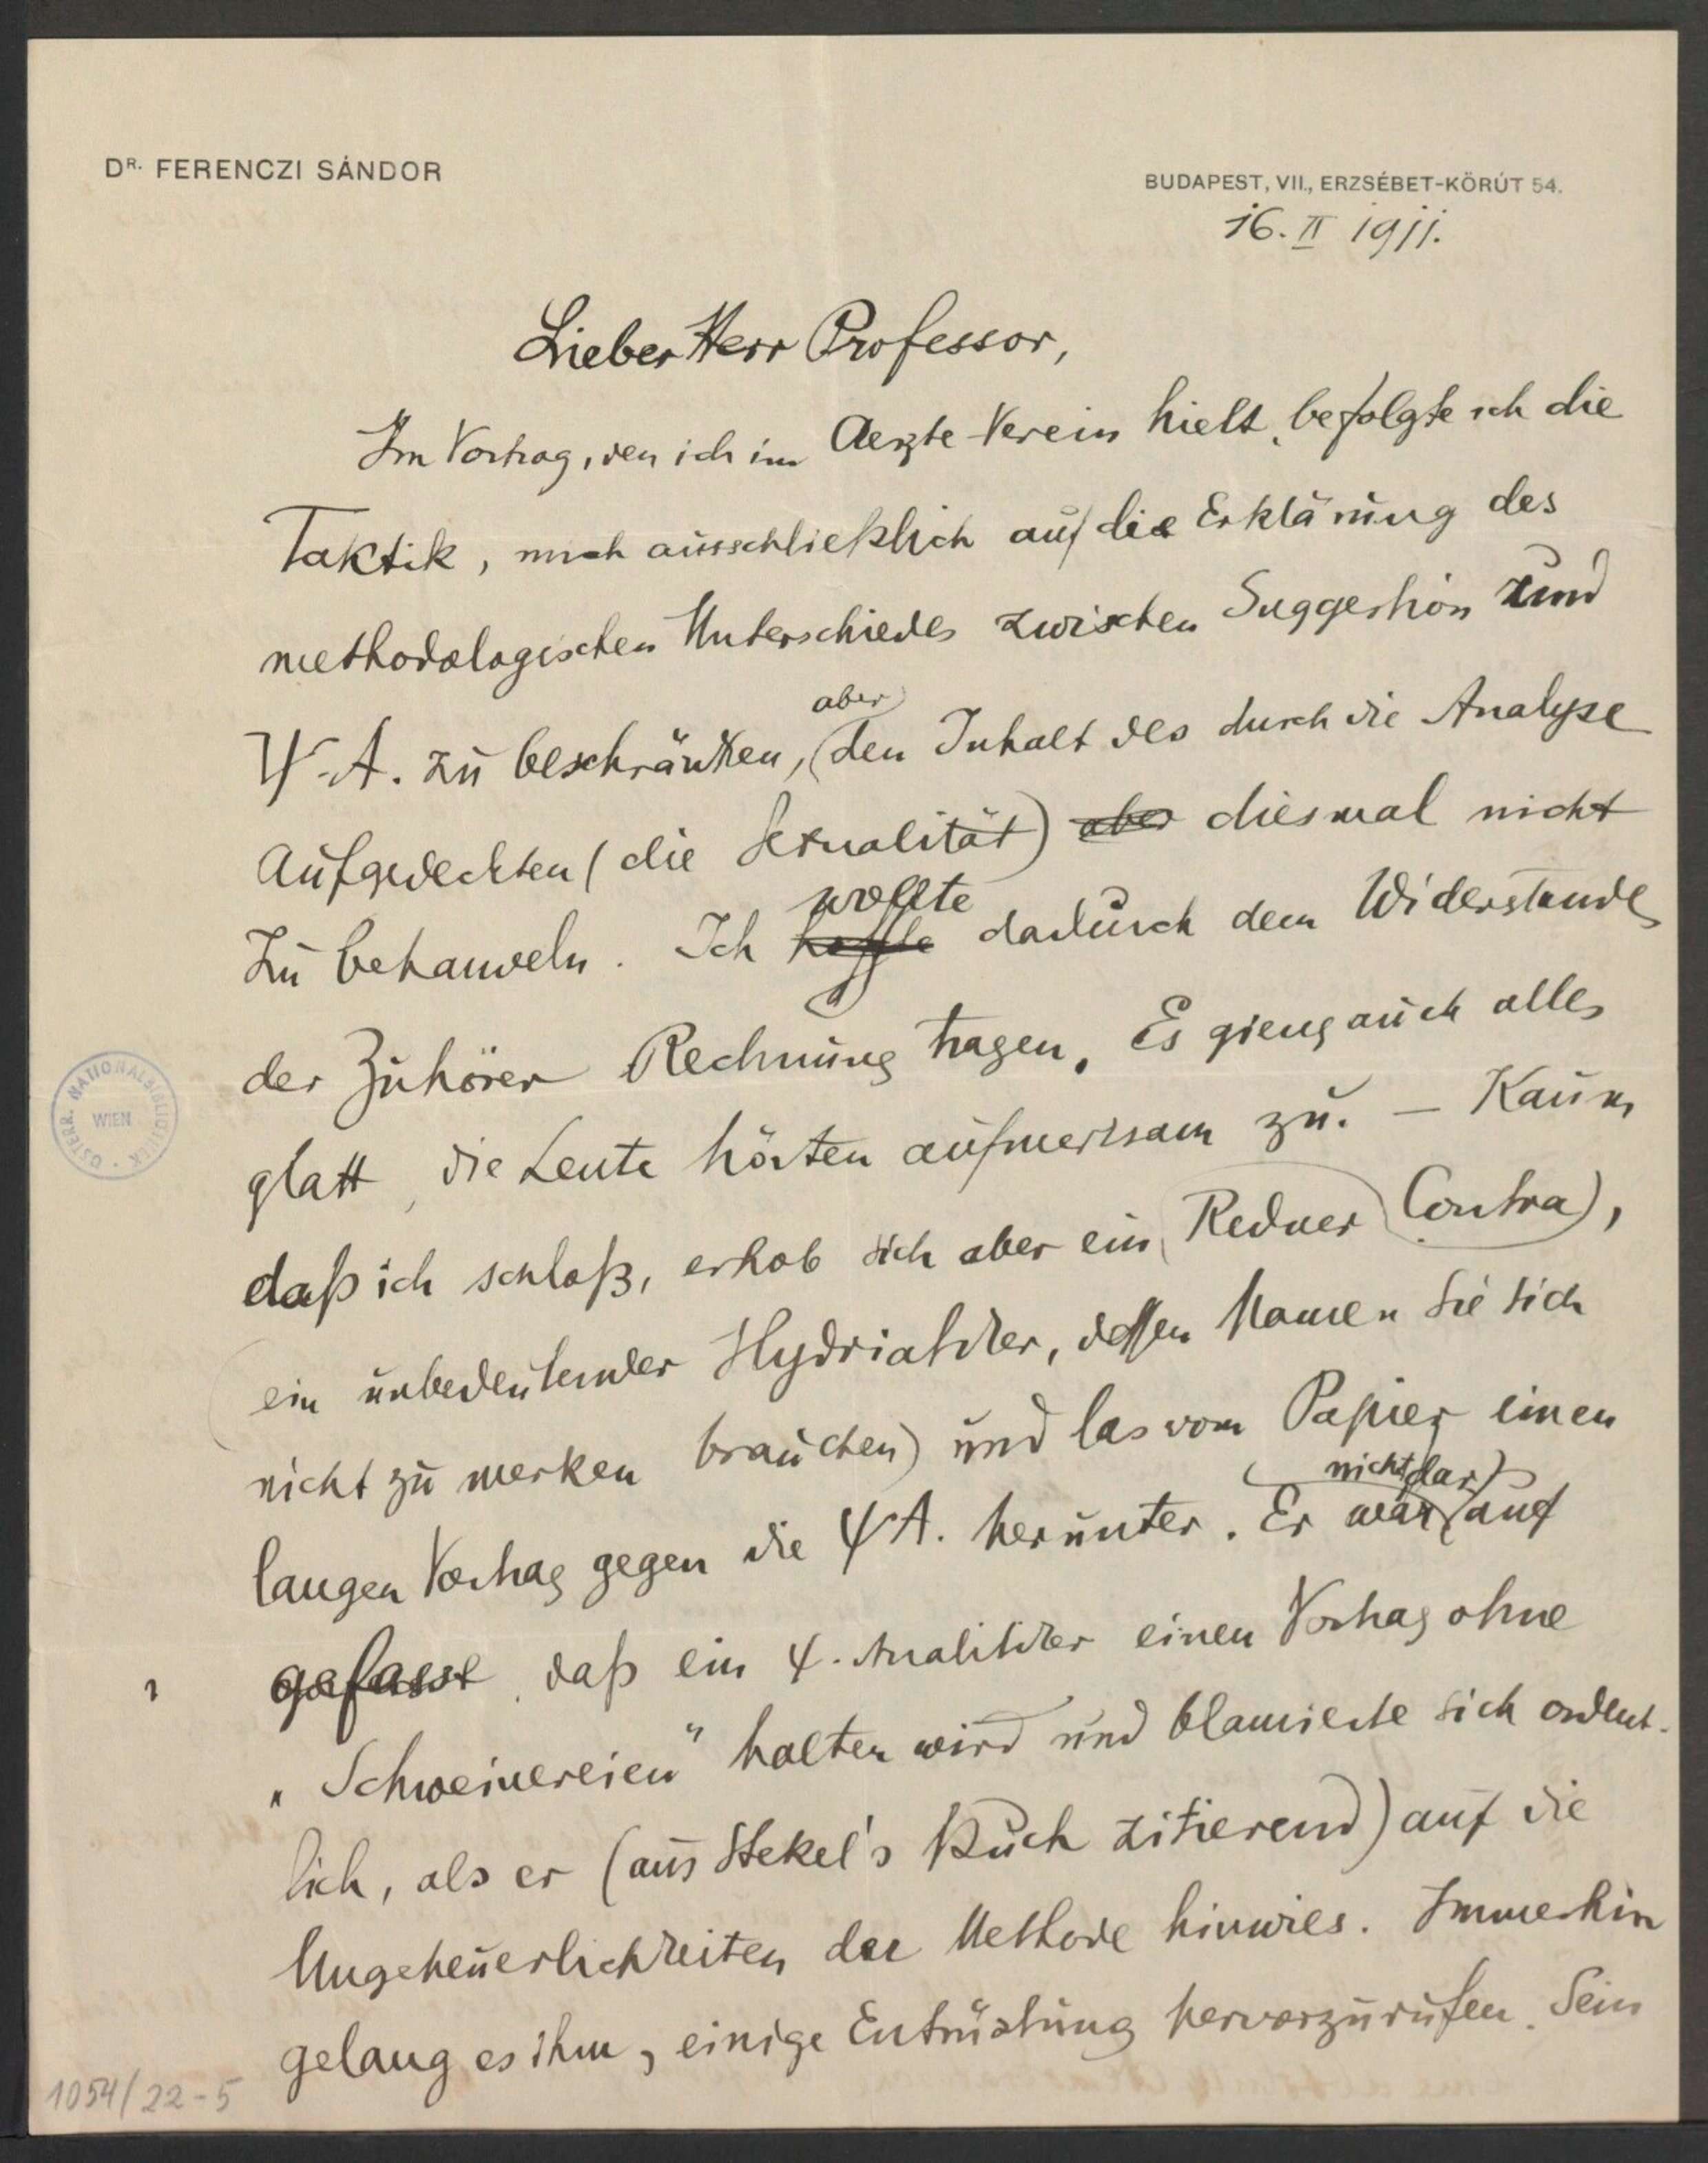 DR. FERENCZI SÁNDOR
BUDAPEST, VII., ERZSÉBET-KÖRÚT 54.
16. II 1911.
Lieber Herr Professor,
Im Vortrag, den ich im Aerzte-Verein hielt, befolgte ich die
Taktik, mich ausschließlich auf die Erklärung des
methodologischen Unterschiedes zwischen Suggestion und
aber
Ψ-A. zu beschränken, (den Inhalt des durch die Analyse
Aufgedeckten (die Sexualität) aber diesmal nicht
wollte
zu behandeln. Ich hoffte dadurch dem Widerstande
der Zuhörer Rechnung tragen. Es gieng auch alles
glatt, die Leute hörten aufmerksam zu. – Kaum
daß ich schloß, erhob sich aber ein Redner (Contra),
(ein unbedeutender Hydriatiker, dessen Namen Sie sich
nicht zu merken brauchen) und las vom Papier einen
nicht dar
langen Vortrag gegen die ΨA. herunter. Er war auf
gefasst, daß ein Ψ-Analitiker einen Vortrag ohne
„Schweinereien" halten wird und blamierte sich ordent-
lich, als er (aus Stekel's Buch zitierend) auf die
Ungeheuerlichkeiten der Methode hinwies. Immerhin
gelang es ihm, einige Entrüstung hervorzurufen. Sein
ÖSTERR. NATIONALBIBLIOTHEK
WIEN
1054/22-5